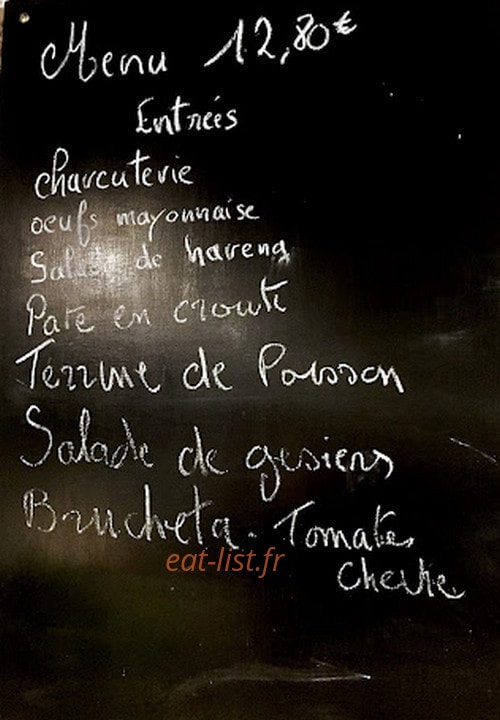 Menu 12,80€
Entrées
charcuterie
oeufs mayonnaise
Salade de hareng
Pate en croute
Terrine de Poisson
Salade de gesiers
Brucheta. Tomate
eat-list.fr